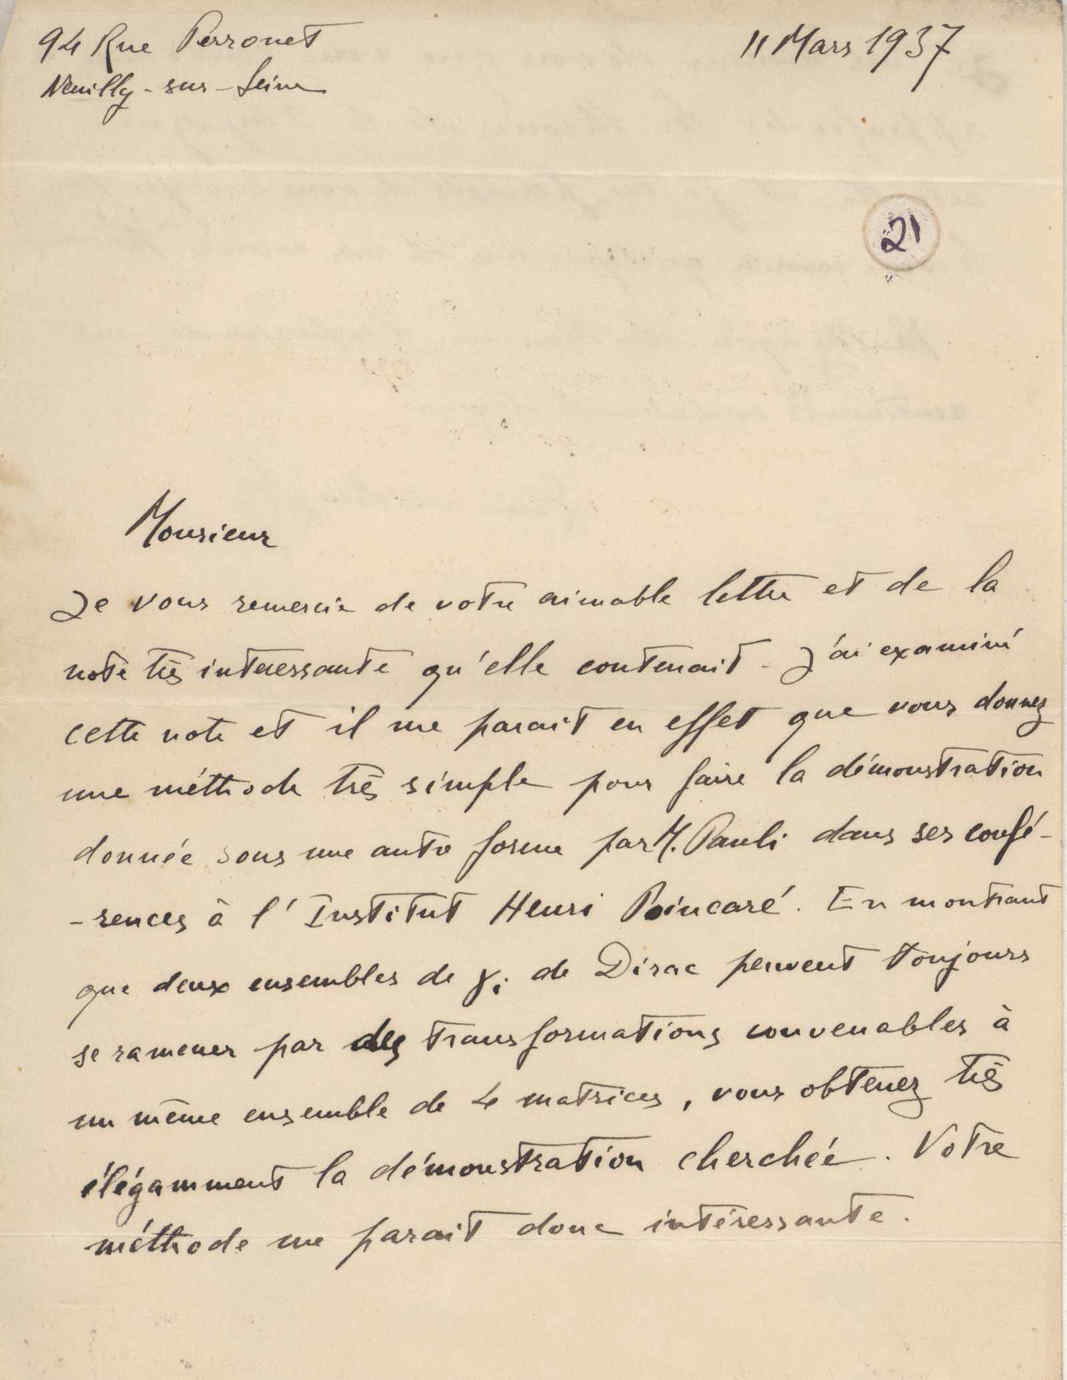 94 Rue Perronet
Neuilly-sur-Seine
11 Mars 1937
21
Monsieur
Je vous remercie de votre aimable lettre et de la
note très intéressante qu'elle contenait - J'ai examiné
cette note et il me parait en effet que vous donnez
une méthode très simple pour faire la démonstration
donnée sous une autre forme par M. Pauli dans ses confé-
-rences à l'Institut Henri Poincaré. En montrant
que deux ensembles de γi de Dirac peuvent toujours
se ramener par des transformations convenables à
un même ensemble de 4 matrices, vous obtenez très
élégamment la démonstration cherchée. Votre
méthode me parait donc intéressante.